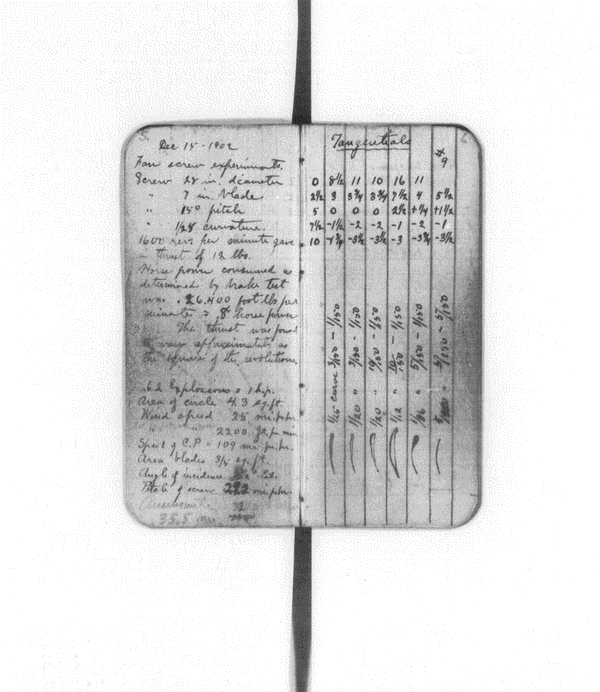 5.
Dec 15 - 1902
Fan screw experiments.
Screw 28 in. diameter
" 7 in. blade
" 15° pitch
" curvature.
1600 rev. per minute gave
a thrust of 12 lbs.
Horse power consumed as
determined by brake test
was 26.400 foot lbs per
minute = .8 horse power
The thrust was found
to vary approximately as
the square of the revolutions.
.62 Explosions = 1 hp.
Area of circle 4.3 sq. ft.
Wind speed 25 mi. pr. hr.
" " 2200. ft. pr min
Speed of C.P = 109 mi. pr. hr.
Area blades sq. ft.
Angle of incidence
Pitch of screw mi pr hr.
35.5
6
Tangentials
# 9
0 8½ 11 10 16 11
2½ 3 3¾ 3¾ 7½ 4 5½
5 0 0 0 2½ +¼ +1½
7½ -1½ -2 -2 -1 -2 -1
10 -1¾ -3½ -3½ -3 -3¾ -3½
1/25 curve - 1/150
1/20 " - 1/150
1/20 " - 1/150
1/12 " - 1/150